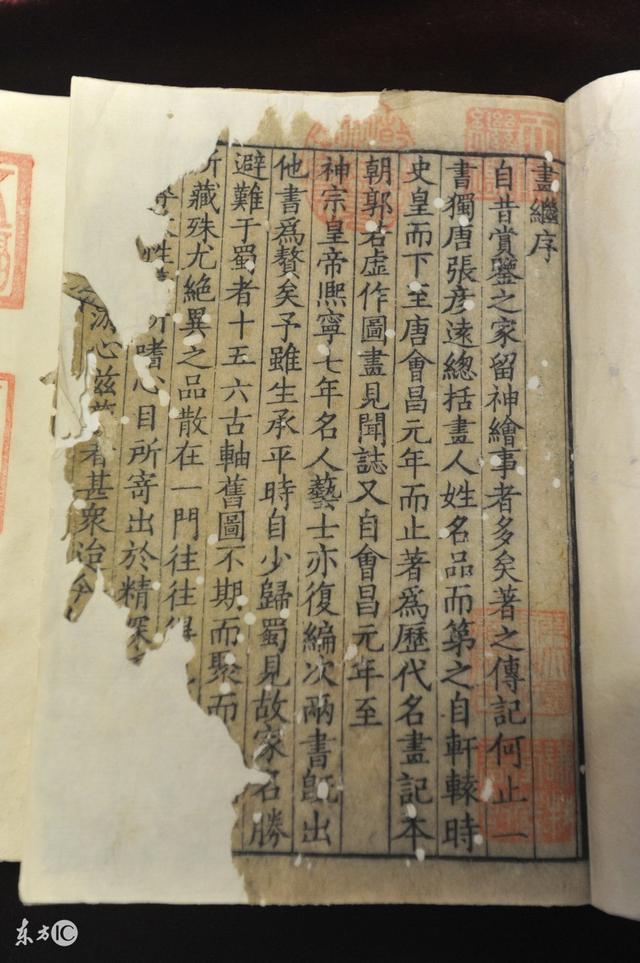 畫繼序
自昔賞鑒之家留神繪事者多矣著之傳記何止一
書獨唐張彥遠總括畫人姓名品而第之自軒轅時
史皇而下至唐會昌元年而止著爲歷代名畫記本
朝郭若虛作圖畫見聞誌又自會昌元年至
神宗皇帝熈寧七年名人藝士亦復編次兩書旣出
他書爲贅矣予雖生承平時自少歸蜀見故家名勝
避難于蜀者十五六古軸舊圖不期而聚而
所藏殊尤絶異之品散在一門往往得
性所嗜心目所寄出於精深
游心兹藝者甚衆迨今
东方IC